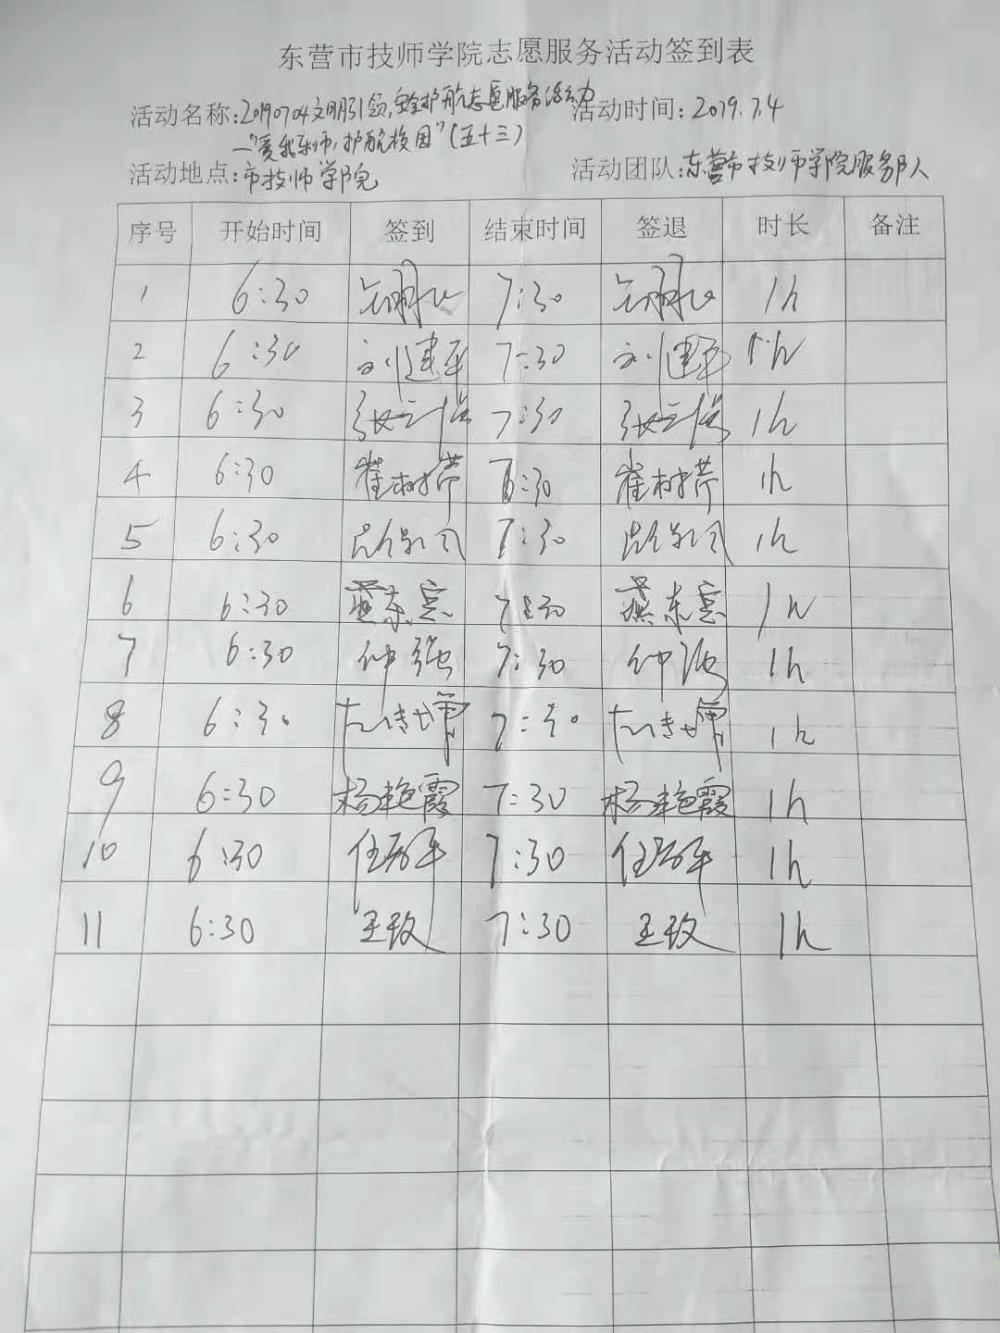 东营市技师学院志愿服务活动签到表
活动名称:20190704文明引领,安全护航志愿服务活动 活动时间:2019.7.4
—"爱我东师,护航校园"(五十三)
活动地点:市技师学院 活动团队:东营市技师学院服务队
序号 开始时间 签到 结束时间 签退 时长 备注
1 6:30 7:30 1h
2 6:30 刘建军 7:30 刘建军 1h
3 6:30 7:30 1h
4 6:30 崔树芹 7:30 崔树芹 1h
5 6:30 7:30 1h
6 6:30 燕东 7:30 燕东 1h
7 6:30 仲强 7:30 仲强 1h
8 6:30 7:30 1h
9 6:30 杨艳霞 7:30 杨艳霞 1h
10 6:30 任 7:30 任 1h
11 6:30 王玫 7:30 王玫 1h